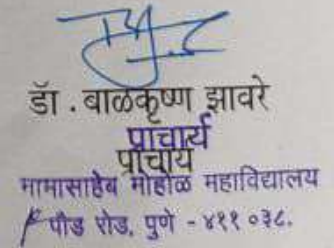 डॉ. बाळकृष्ण झावरे
प्राचार्य
प्राचार्य
मामासाहेब मोहोळ महाविद्यालय
पौड रोड, पुणे - ४११ ०३८.